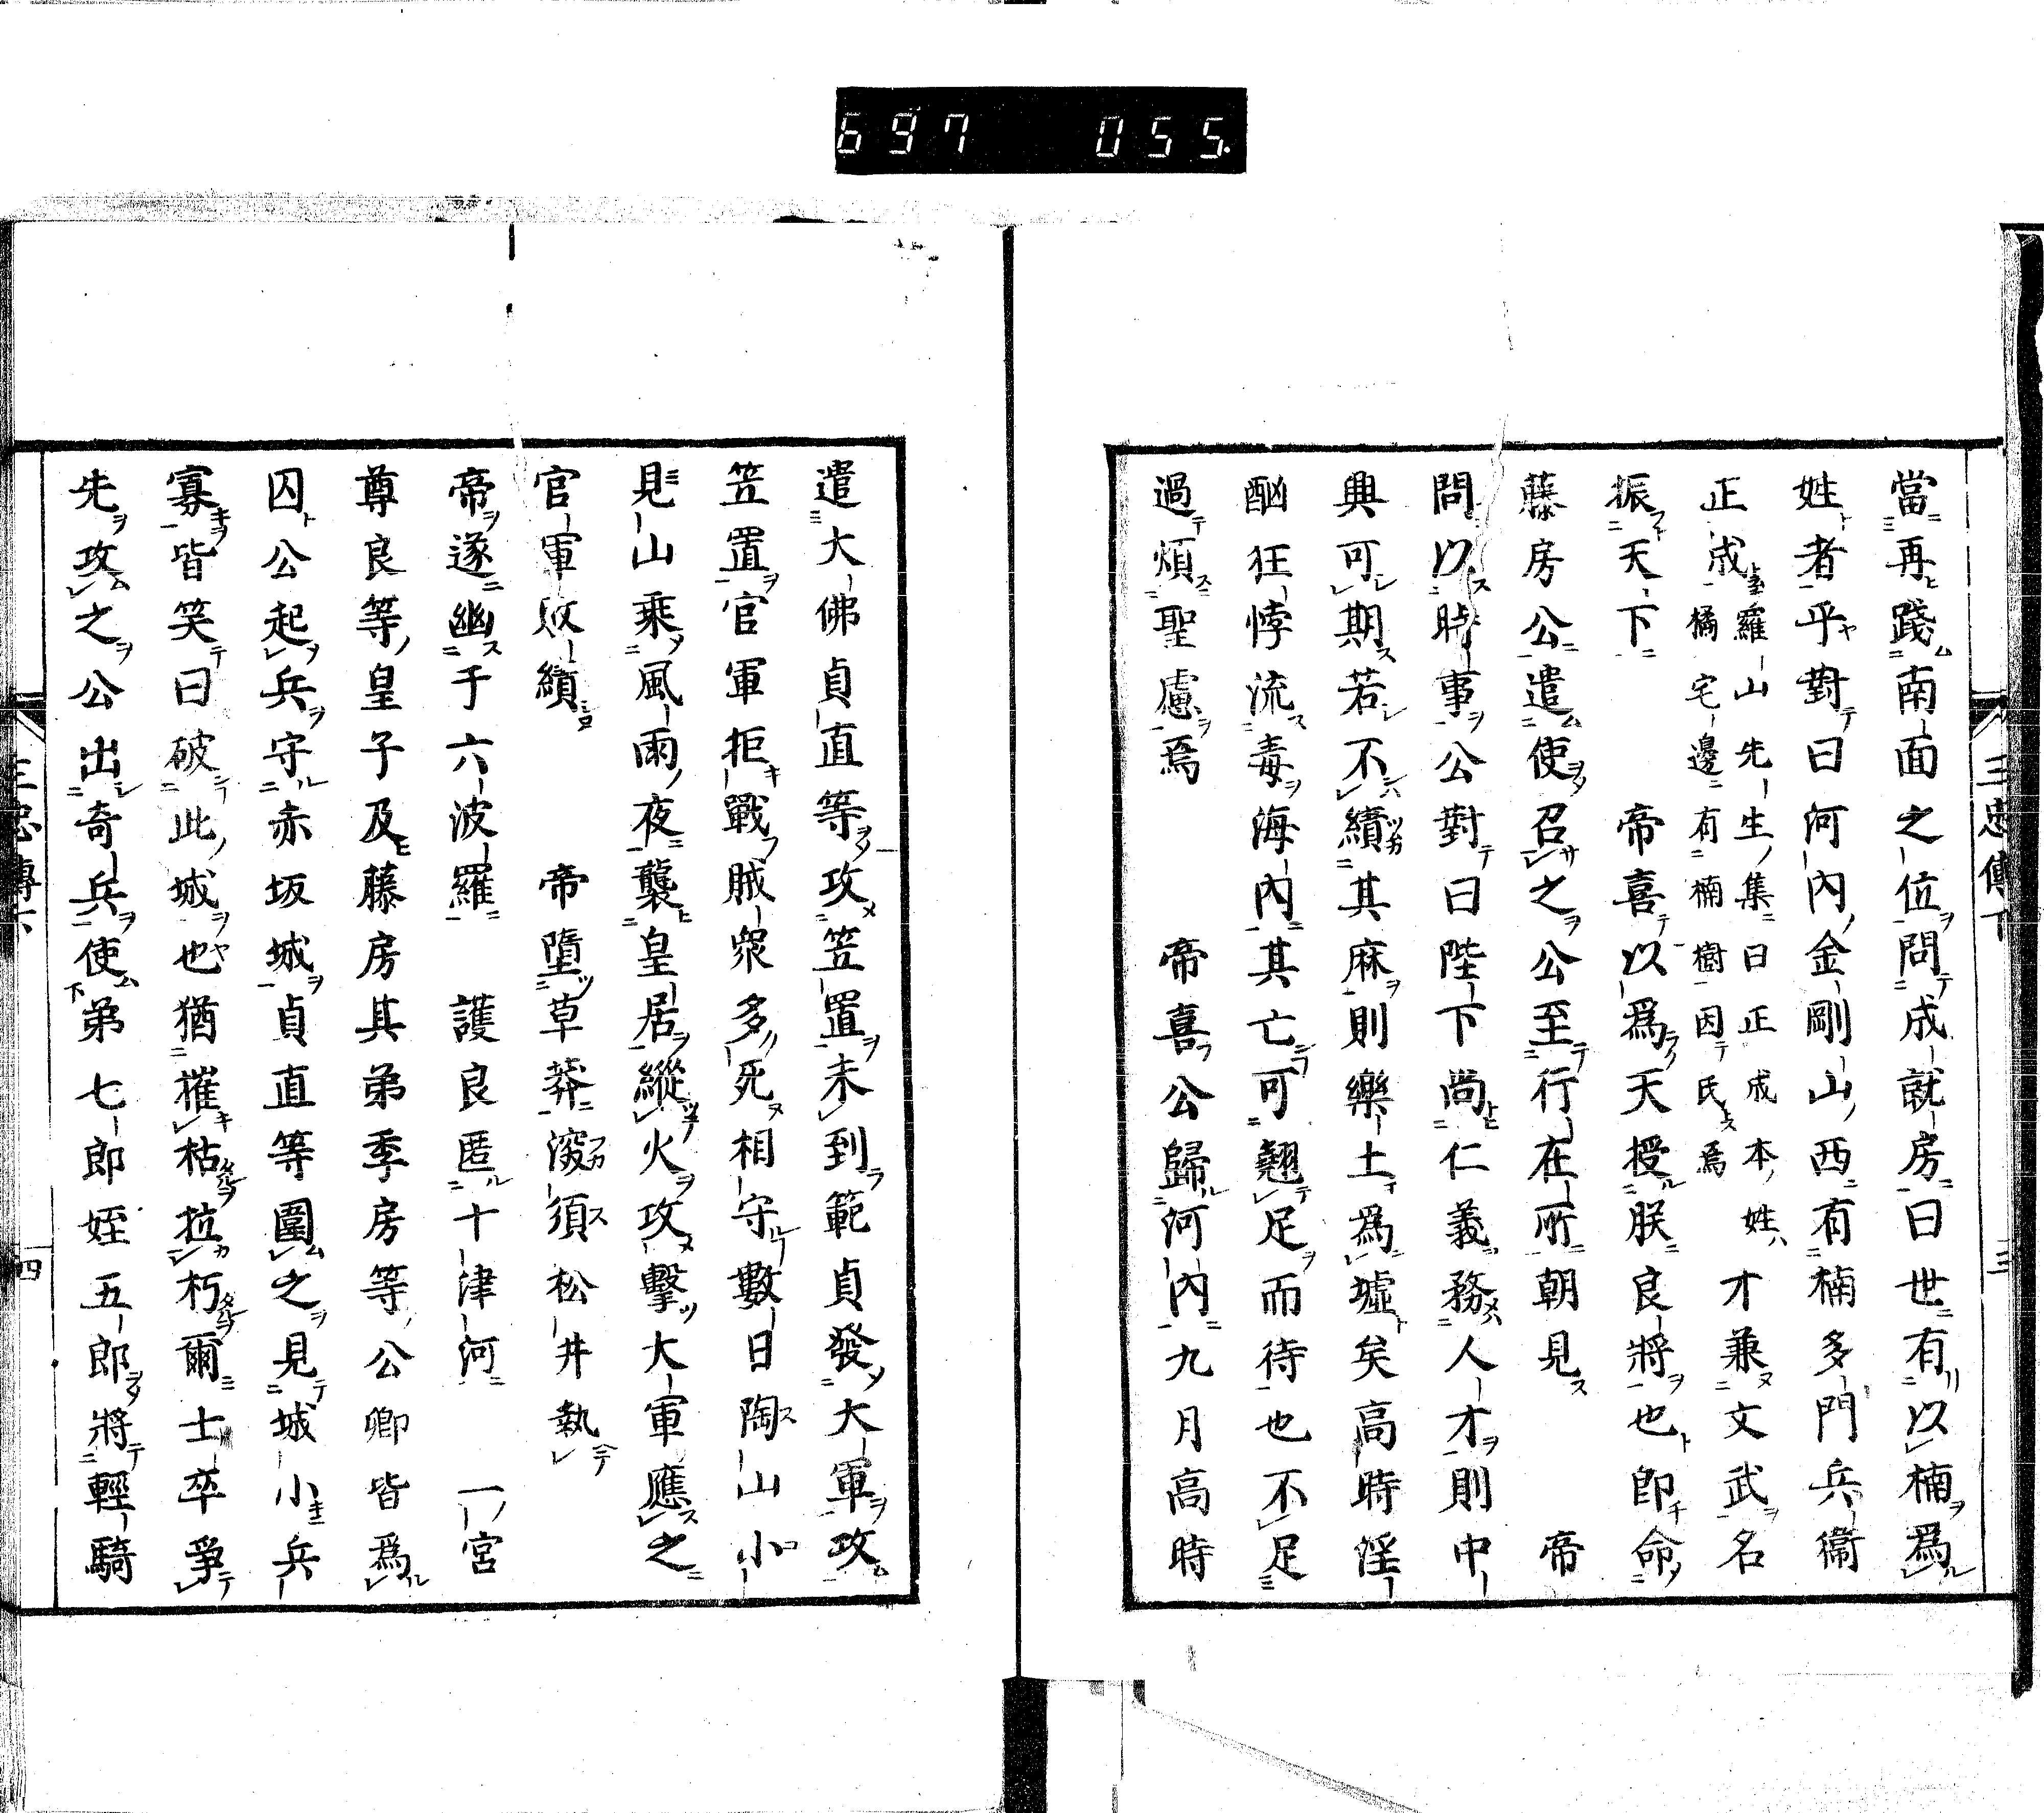 697 055.
三忠傳下
三
當再踐南面之位問成就房曰世有以楠爲
姓者乎對曰河內金剛山西有楠多門兵衞
正成羅山先生集曰正成本姓橘宅邊有楠樹因氏焉才兼文武名
振天下 帝喜以爲天授朕良將也卽命
藤房公遣使召之公至行在所朝見 帝
問以時事公對曰陛下尚仁義務人才則中
興可期若不續其麻則樂土爲墟矣高時淫
酗狂悖流毒海內其亡可翹足而待也不足
過煩聖慮焉 帝喜公歸河內九月高時
遣大佛貞直等攻笠置未到範貞發大軍攻
笠置官軍拒戰賊衆多死相守數日陶山小
見山乘風雨夜襲皇居縱火攻擊大軍應之
官軍敗績 帝墮草莽深須松井執
帝遂幽于六波羅 護良匿十津河 一宮
尊良等皇子及藤房其弟季房等公卿皆爲
囚公起兵守赤坂城貞直等圍之見城小兵
寡皆笑曰破此城也猶摧枯拉朽爾士卒爭
先攻之公出奇兵使弟七郎姪五郎將輕騎
三忠傳下
四